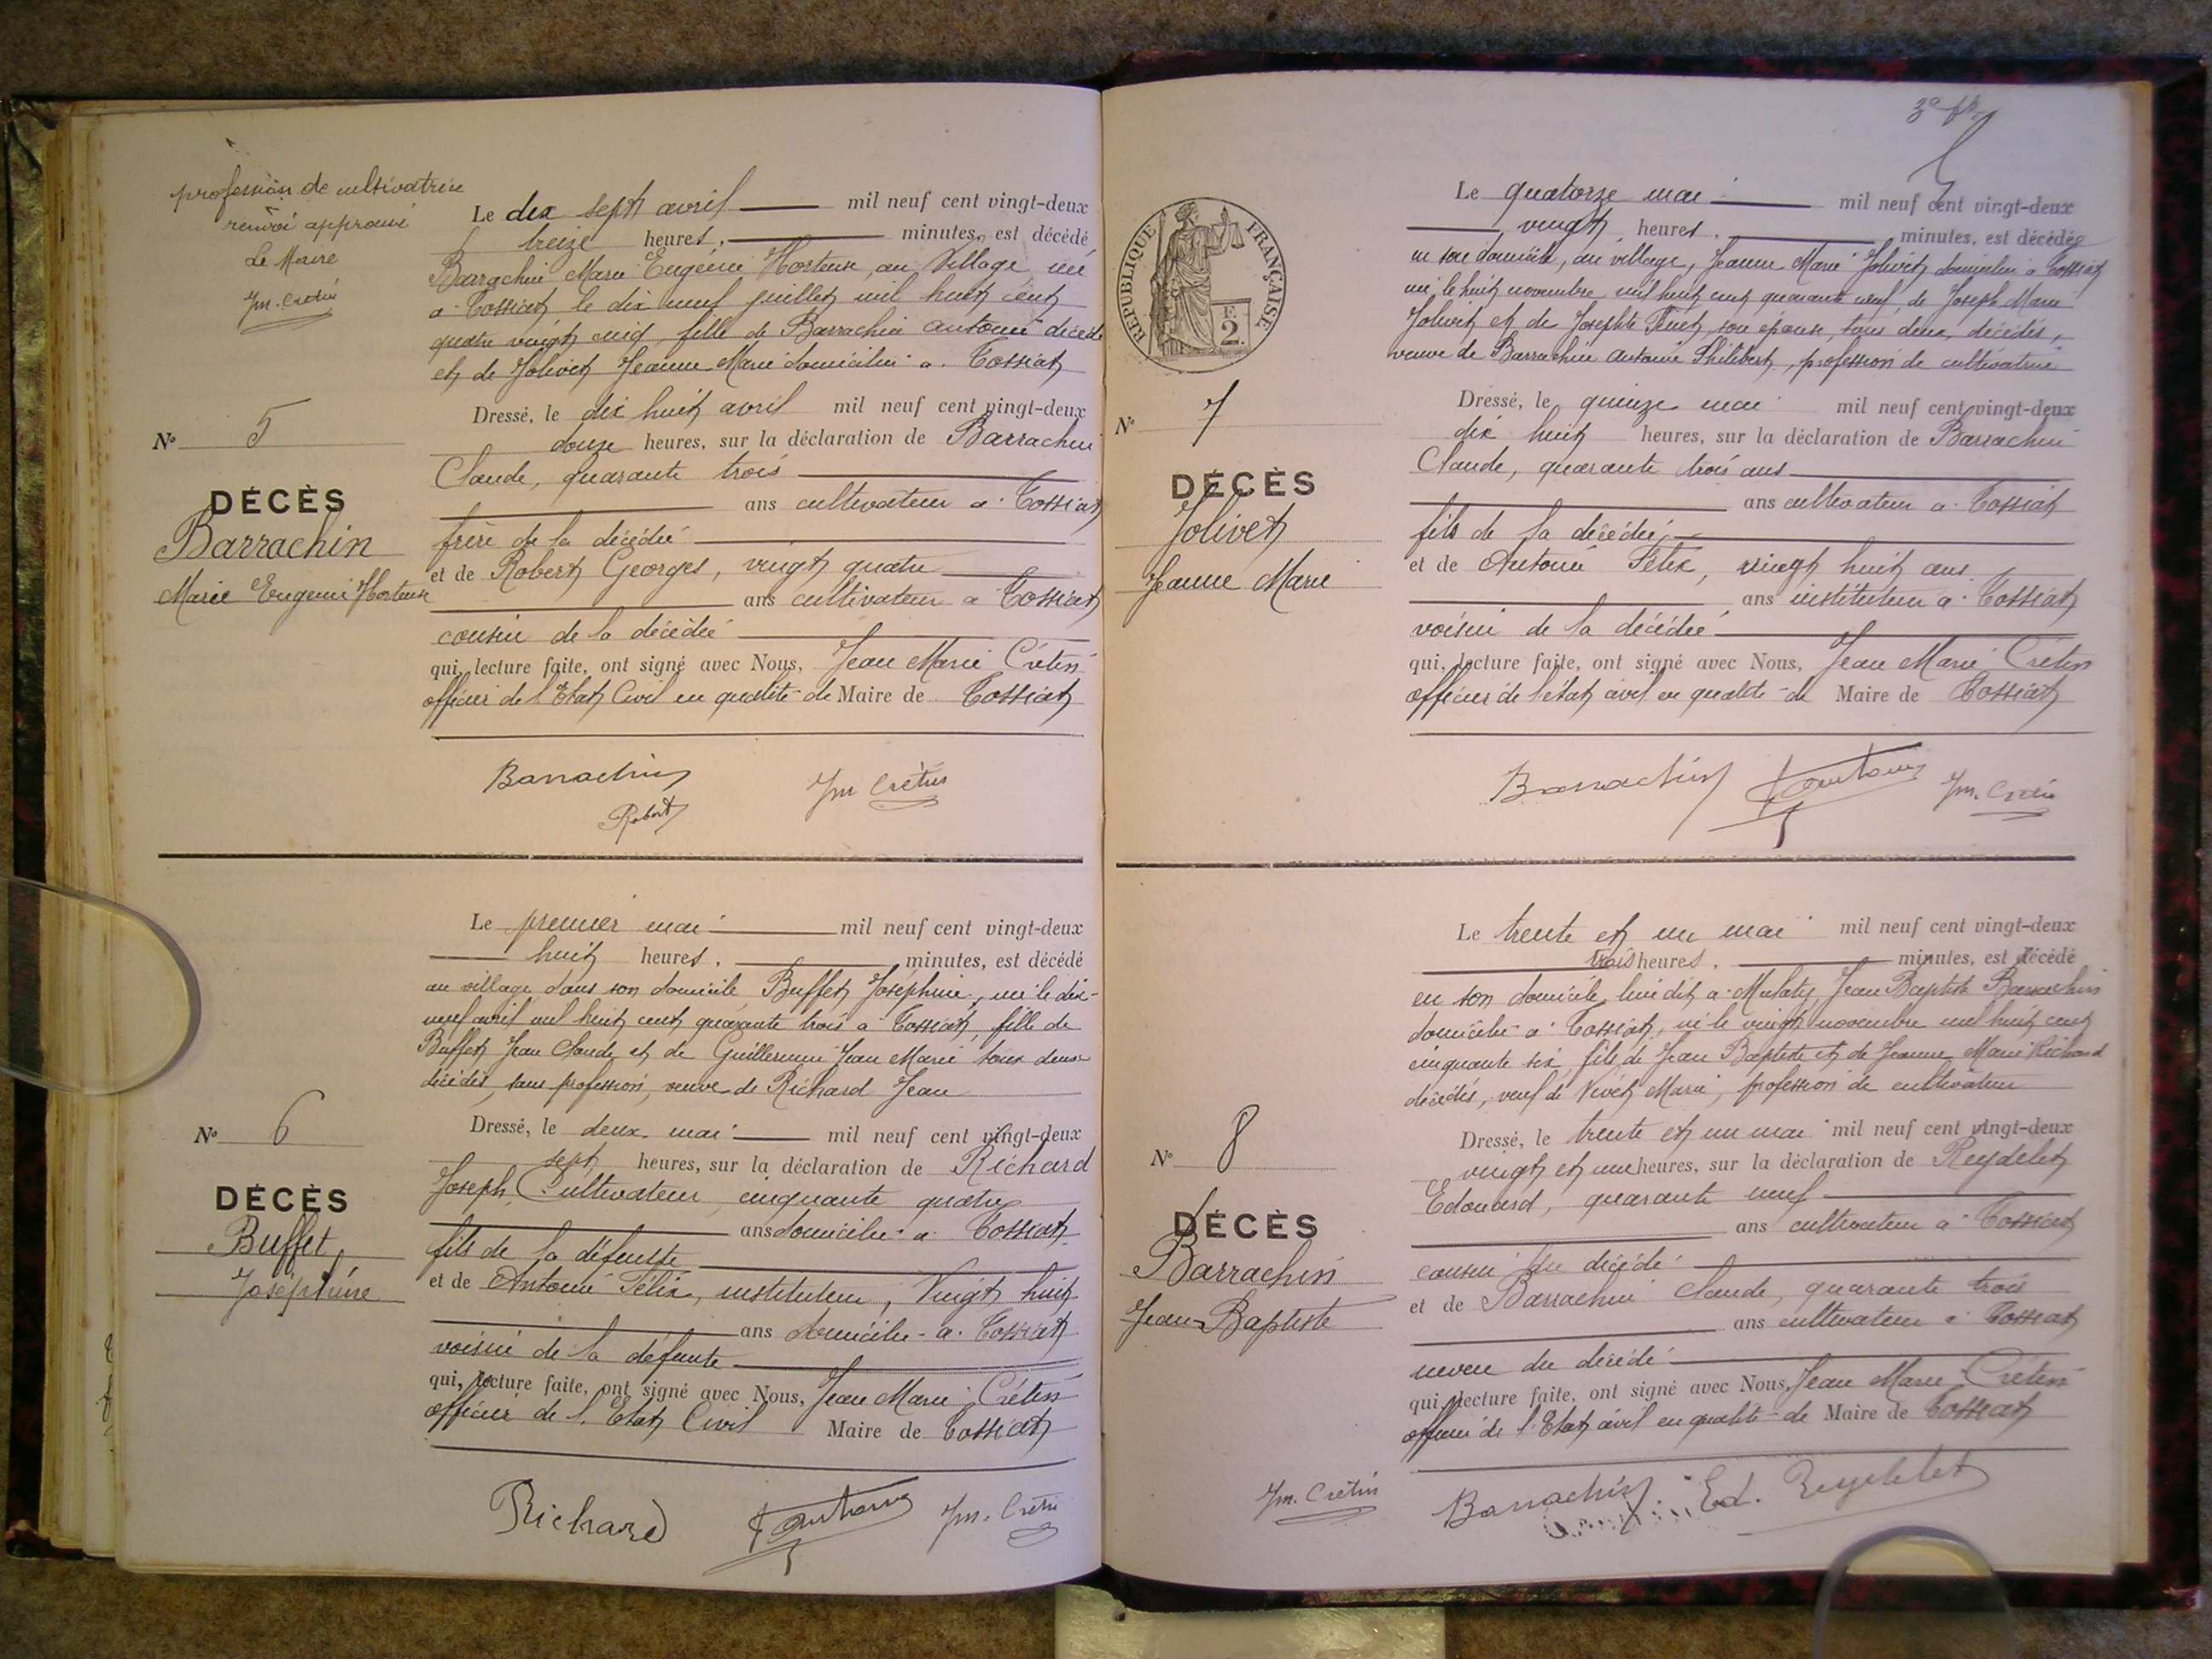 profession de cultivatrice
renvoi approuvé
Le Maire
Jm. Crétin
Le dix sept avril mil neuf cent vingt-deux
treize heures, minutes, est décédé
Barrachin Marie Eugénie Hortense, au Village, née
à Tossiat le dix neuf juillet mil huit cent
quatre vingt cinq, fille de Barrachin Antoine décédé
et de Jolivet Jeanne Marie domiciliée à Tossiat
Dressé, le dix huit avril mil neuf cent vingt-deux
douze heures, sur la déclaration de Barrachin
Claude, quarante trois
ans cultivateur à Tossiat
frère de la décédée
et de Robert Georges, vingt quatre
ans cultivateur à Tossiat
cousin de la décédée
qui, lecture faite, ont signé avec Nous, Jean Marie Crétin
officier de l'Etat Civil en qualité de Maire de Tossiat
N° 5
DÉCÈS
Barrachin
Marie Eugénie Hortense
Barrachin
Robert
Jm Crétin
Le premier mai mil neuf cent vingt-deux
huit heures, minutes, est décédé
au village dans son domicile Buffet Joséphine, née le dix-
neuf avril mil huit cent quarante trois à Tossiat, fille de
Buffet Jean Claude et de Guillermin Jean Marie tous deux
décédés, sans profession, veuve de Richard Jean
Dressé, le deux mai mil neuf cent vingt-deux
sept heures, sur la déclaration de Richard
Joseph Cultivateur, cinquante quatre
ans domicilié à Tossiat
fils de la défunte
et de Antoine Félix, instituteur, Vingt huit
ans domicilié à Tossiat
voisin de la défunte
qui, lecture faite, ont signé avec Nous, Jean Marie Crétin
officier de l'Etat Civil Maire de Tossiat
N° 6
DÉCÈS
Buffet
Joséphine
Richard
Jm. Crétin
RÉPUBLIQUE FRANÇAISE
2 F.
Le quatorze mai mil neuf cent vingt-deux
vingt heures, minutes, est décédée
en son domicile, au village, Jeanne Marie Jolivet, domiciliée à Tossiat
née le huit novembre mil huit cent quarante neuf, de Joseph Marie
Jolivet et de Josephte son épouse, tous deux décédés,
veuve de Barrachin Antoine Philibert, profession de cultivatrice
Dressé, le quinze mai mil neuf cent vingt-deux
dix huit heures, sur la déclaration de Barrachin
Claude, quarante trois ans
ans cultivateur à Tossiat
fils de la décédée
et de Antoine Félix, vingt huit ans
ans instituteur à Tossiat
voisin de la décédée
qui, lecture faite, ont signé avec Nous, Jean Marie Crétin
officier de l'état civil en qualité de Maire de Tossiat
N° 7
DÉCÈS
Jolivet
Jeanne Marie
Barrachin
Jm. Crétin
Le trente et un mai mil neuf cent vingt-deux
trois heures, minutes, est décédé
en son domicile, lieu dit à Jean Baptiste Barrachin
domicilié à Tossiat, né le vingt novembre mil huit cent
cinquante six, fils de Jean Baptiste et de Jeanne Marie Richard
décédés, veuf de Nivet Marie, profession de cultivateur
Dressé, le trente et un mai mil neuf cent vingt-deux
vingt et une heures, sur la déclaration de Reydelet
Edouard, quarante neuf
ans cultivateur à Tossiat
cousin du décédé
et de Barrachin Claude, quarante trois
ans cultivateur à Tossiat
neveu du décédé
qui, lecture faite, ont signé avec Nous, Jean Marie Crétin
officier de l'Etat civil en qualité de Maire de Tossiat
N° 8
DÉCÈS
Barrachin
Jean Baptiste
Jm. Crétin
Barrachin
Ed. Reydelet